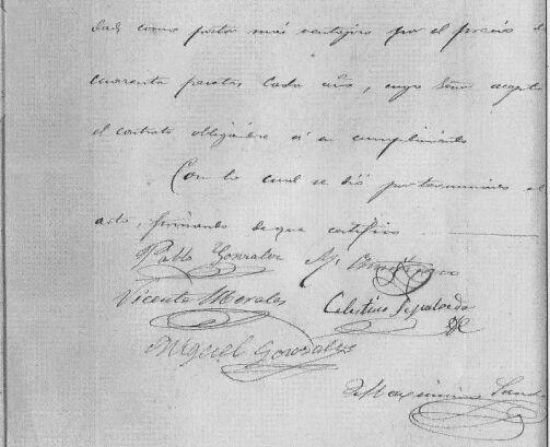 dad, como postor más ventajoso por el precio d
cuarenta pesetas cada año, cuyo Señor acepta
el contrato obligándose á su cumplimiento
Con lo cual se dió por terminado el
acto, firmando de que certifico
Pablo Gonzalez M.
Vicente Morales Celestino Sepulveda
Miguel Gonzales
Maximino Sand